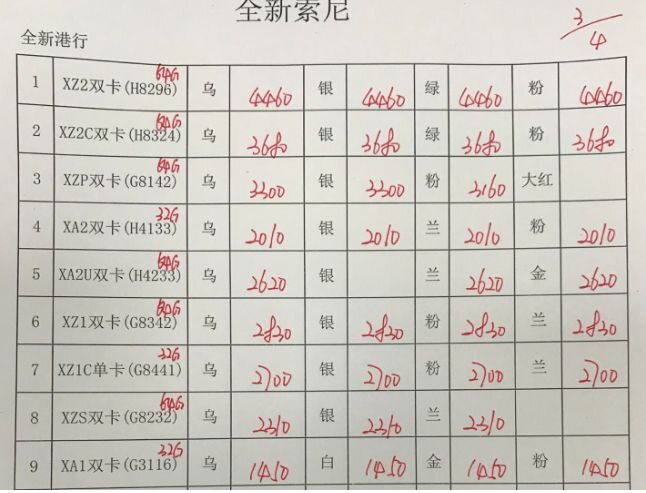 全新索尼
3/4
全新港行
1 XZ2双卡(H8296) 64G 乌 4460 银 4460 绿 4460 粉 4460
2 XZ2C双卡(H8324) 64G 乌 3680 银 3680 绿 3680 粉 3680
3 XZP双卡(G8142) 64G 乌 3300 银 3300 粉 3160 大红
4 XA2双卡(H4133) 32G 乌 2010 银 2010 兰 2010 粉 2010
5 XA2U双卡(H4233) 64G 乌 2620 银 兰 2620 金 2620
6 XZ1双卡(G8342) 64G 乌 2830 银 2830 粉 2830 兰 2830
7 XZ1C单卡(G8441) 32G 乌 2700 银 2700 粉 2700 兰 2700
8 XZS双卡(G8232) 64G 乌 2310 银 2310 兰 2310
9 XA1双卡(G3116) 32G 乌 1450 白 1450 金 1450 粉 1450